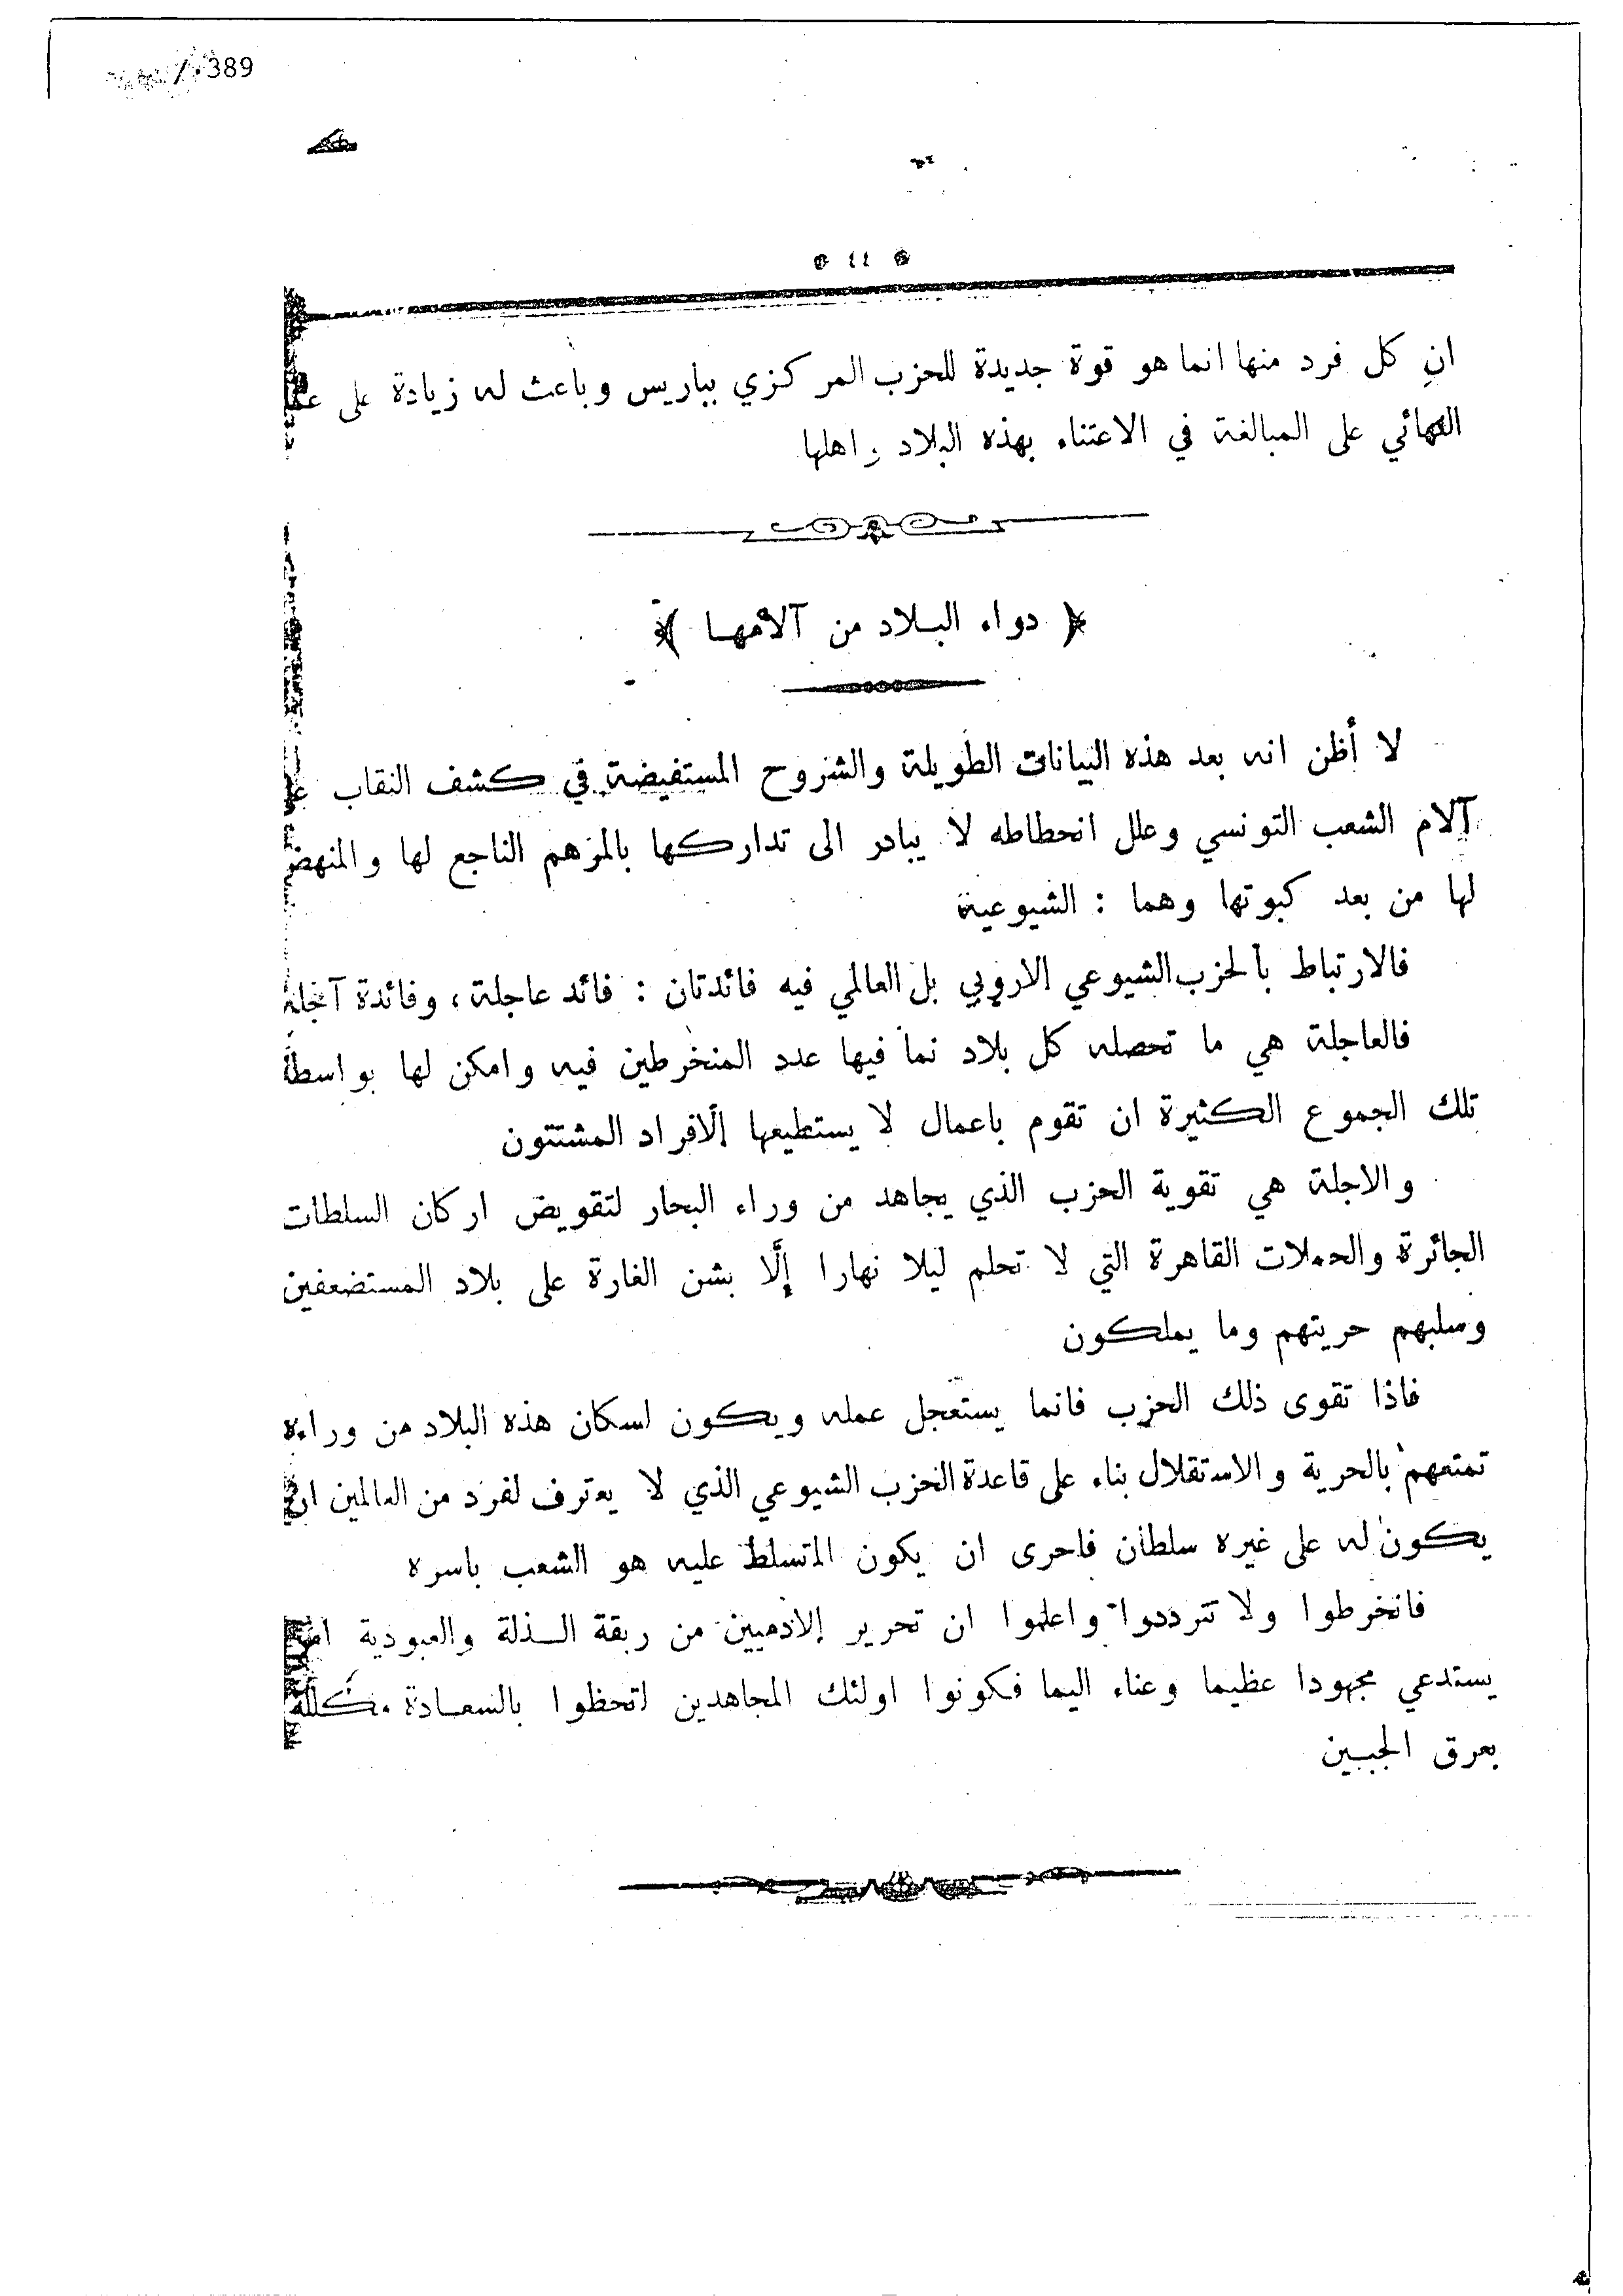 389
٤٤
ان كل فرد منها انما هو قوة جديدة للحزب المركزي بباريس وباعث له زيادة على
النهائي على المبالغة في الاعتناء بهذه البلاد واهلها
﴿ دواء البلاد من آلامها ﴾
لا أظن انه بعد هذه البيانات الطويلة والشروح المستفيضة في كشف النقاب
آلام الشعب التونسي وعلل انحطاطه لا يبادر الى تداركها بالمرهم الناجع لها والمنهض
لها من بعد كبوتها وهما : الشيوعية
فالارتباط بالحزب الشيوعي الاروبي بل العالمي فيه فائدتان : فائد عاجلة ، وفائدة آجلة
فالعاجلة هي ما تحصله كل بلاد نما فيها عدد المنخرطين فيه وامكن لها بواسطة
تلك الجموع الكثيرة ان تقوم باعمال لا يستطيعها الافراد المشتتون
والاجلة هي تقوية الحزب الذي يجاهد من وراء البحار لتقويض اركان السلطات
الجائرة والحملات القاهرة التي لا تحلم ليلا نهارا إلّا بشن الغارة على بلاد المستضعفين
وسلبهم حريتهم وما يملكون
فاذا تقوى ذلك الحزب فانما يستعجل عمله ويكون لسكان هذه البلاد من وراءه
تمتعهم بالحرية والاستقلال بناء على قاعدة الحزب الشيوعي الذي لا يعترف لفرد من العالمين ان
يكون له على غيره سلطان فاحرى ان يكون المتسلط عليه هو الشعب باسره
فانخرطوا ولا تترددوا واعلموا ان تحرير الادميين من ربقة الذلة والعبودية امر
يستدعي مجهودا عظيما وعناء اليما فكونوا اولئك المجاهدين لتحظوا بالسعادة مكللة
بعرق الجبين